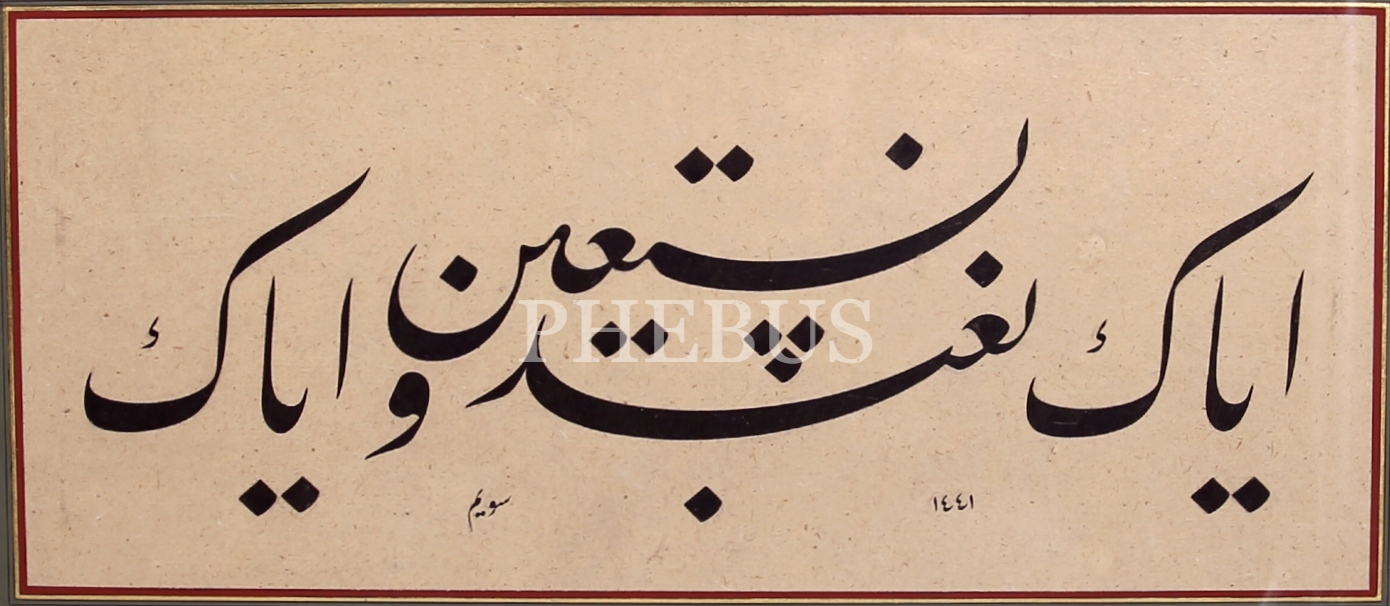 اياك نعبد و اياك نستعين
سويم
١٤٤١
PHEBUS